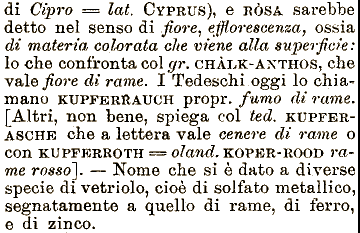 di Cipro = lat. CYPRUS), e RÒSA sarebbe
detto nel senso di fiore, efflorescenza, ossia
di materia colorata che viene alla superficie:
lo che confronta col gr. CHÀLK-ANTHOS, che
vale fiore di rame. I Tedeschi oggi lo chia-
mano KUPFERRAUCH propr. fumo di rame.
[Altri, non bene, spiega col ted. KUPFER-
ASCHE che a lettera vale cenere di rame o
con KUPFERROTH = oland. KOPER-ROOD ra-
me rosso]. — Nome che si è dato a diverse
specie di vetriolo, cioè di solfato metallico,
segnatamente a quello di rame, di ferro,
e di zinco.